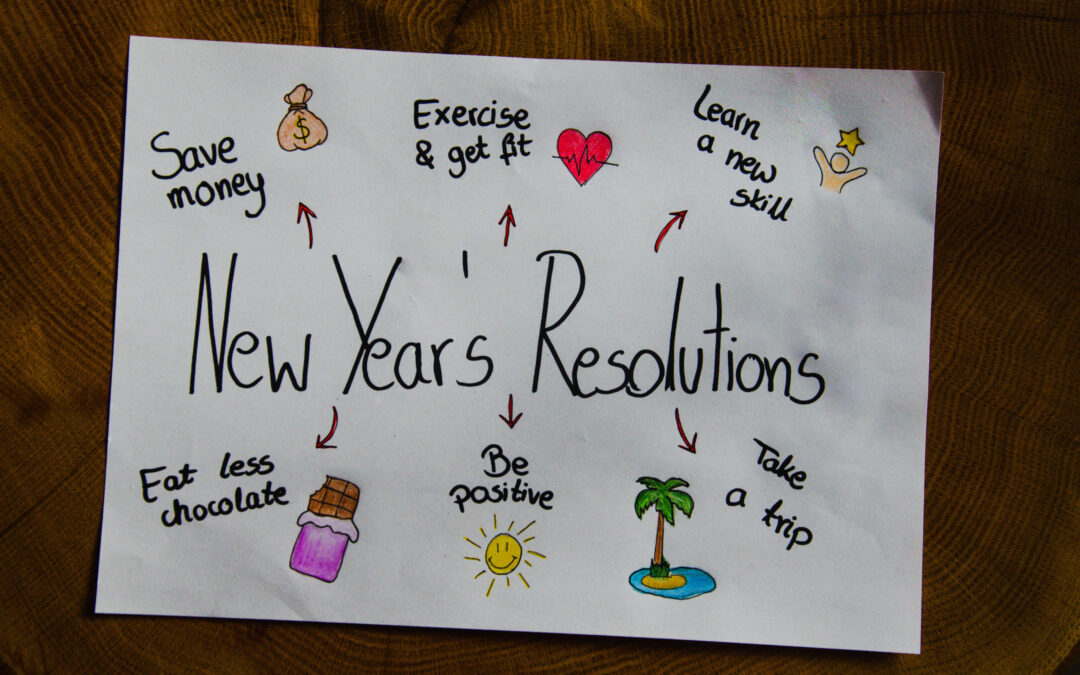 Save
money
$
Exercise
& get fit
Learn
a new
skill
New Year's Resolutions
Eat less
chocolate
Be
positive
Take
a trip